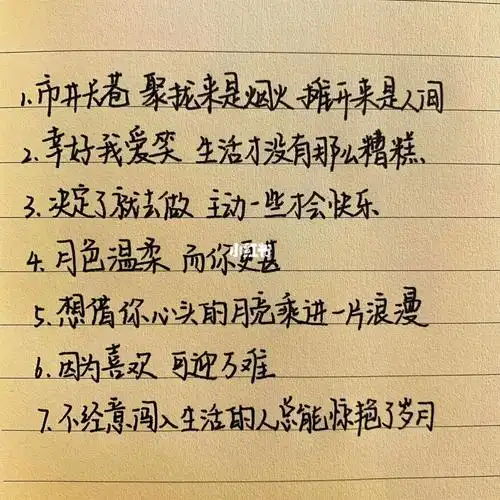 1.市井长巷 聚拢来是烟火 摊开来是人间
2.幸好我爱笑 生活才没有那么糟糕.
3.决定了就去做 主动一些才会快乐
4.月色温柔 而你更甚
小红书
5.想借你心头的月亮乘进一片浪漫
6.因为喜欢 可迎万难
7.不经意闯入生活的人总能惊艳了岁月